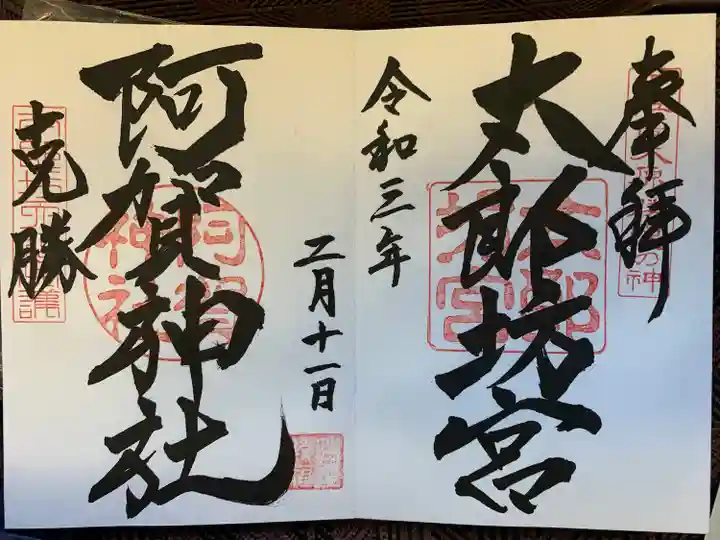 奉拝
太郎坊宮
太郎坊宮
令和三年
二月十一日
阿賀神社
阿賀神社
克勝